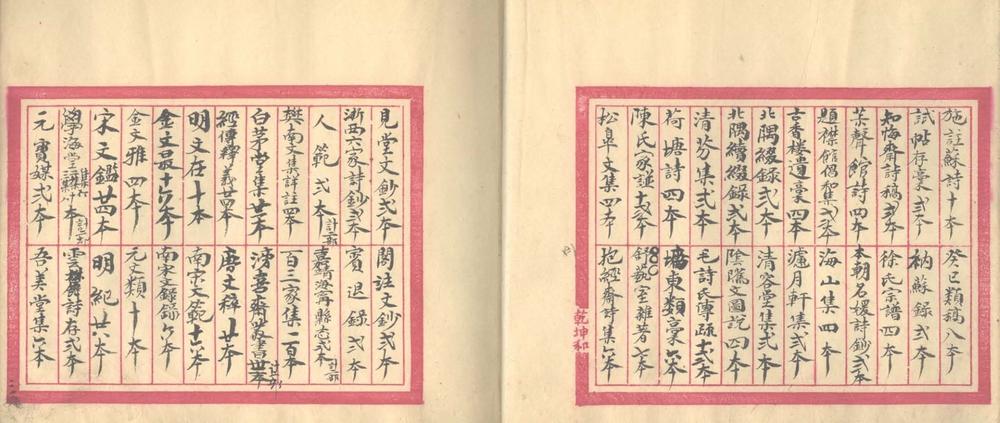 施註蘇詩十本
癸巳類稿八本
試帖存稾弍本
衲蘇錄弍本
知悔齋詩稿弍本
徐氏宗譜四本
茶聲館詩四本
本朝名媛詩鈔弍本
題襟館倡和集弍本
海山集四本
古香樓遺稾四本
濾月軒集弍本
北隅綴錄弍本
清容堂集弍本
北隅續綴錄弍本
陰騭文圖説四本
清芬集弍本
毛詩氏傳疏十弍本
荷塘詩四本
墻東類稾六本
陳氏家譜十五本
舒藝室雜著七本
松皐文集四本
抱經齋詩集六本
乾坤和
見堂文鈔弍本
閱注文鈔弍本
浙西六家詩鈔弍本
賓退錄弍本
人範弍本 計一部
嘉靖海寧縣志弍本 計一部
樊南文集詳註四本
百三家集一百本
白茅堂集廿本
滂喜齋叢書卅本
經傳釋義廿四本
唐文粹廿本
明文在十本
南宋文範十六本
金文最十六本
南宋文錄錄六本
金文雅四本
元文類十本
宋文鑑廿四本
明紀廿八本
學海堂二集三集八十本 計二部
雲樵詩存弍本
元寶媒弍本
吾美堂集六本